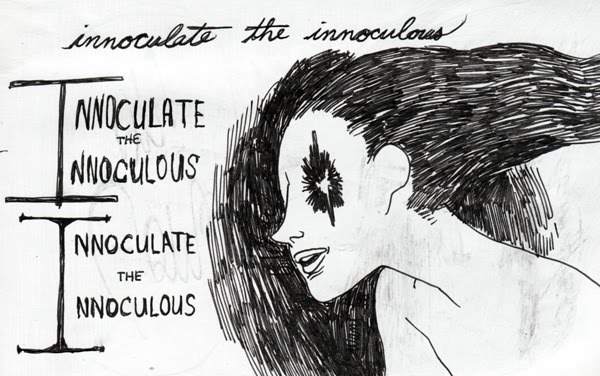 innoculate the innoculous
INNOCULATE
THE
INNOCULOUS
INNOCULATE
THE
INNOCULOUS